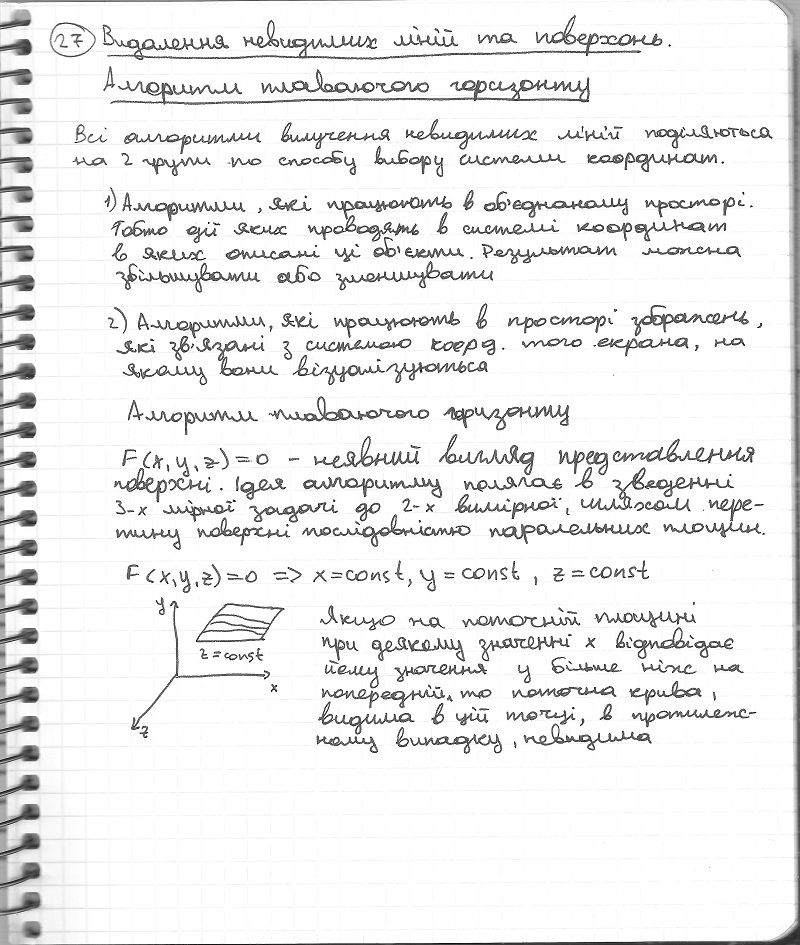 27 Видалення невидимих ліній та поверхонь.
Алгоритм плаваючого горизонту
Всі алгоритми вилучення невидимих ліній поділяються
на 2 групи по способу вибору системи координат.
1) Алгоритми, які працюють в об'єднаному просторі.
Тобто дії яких проводять в системі координат
в яких описані ці об'єкти. Результат можна
збільшувати або зменшувати
2) Алгоритми, які працюють в просторі зображень,
які зв'язані з системою коорд. того екрана, на
якому вони візуалізуються
Алгоритм плаваючого горизонту
F(x,y,z)=0 – неявний вигляд представлення
поверхні. Ідея алгоритму полягає в зведенні
3-х мірної задачі до 2-х вимірної, шляхом пере-
тину поверхні послідовністю паралельних площин.
F(x,y,z)=0 => x=const, y=const, z=const
y
z=const
x
z
Якщо на поточній площині
при деякому значенні x відповідає
йому значення y більше ніж на
попередній, то поточна крива,
видима в цій точці, в протилеж-
ному випадку, невидима